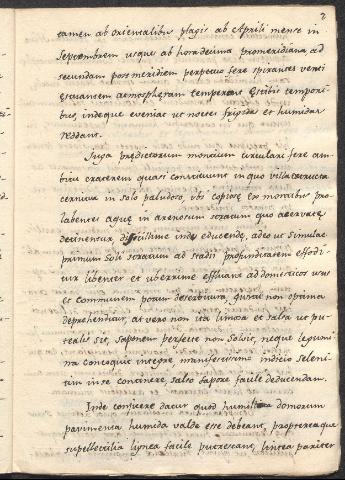 2
tamen ab orientalibus plagis ab Aprili mense in
Septembrem usque ab hora decima promeridiana ad
secundam post meridiem perpetuo fere spirantes venti
æstuantem atmospheram temperant æstivis tempori-
bus, indeque eveniat ut noctes frigidas et humidas
reddant.
Juga prædictorum montium circulari fere am-
bitu craterem quasi constituunt in quo villa extructa
cernitur in solo paludoso, ubi copiose ex montibus pro-
labentes aquæ in arenosum stratum quo acervatæ
detinentur, difficillime inde educendæ, adeo ut simulac
primum soli stratum ad stadii profunditatem effodi-
tur libenter et uberrime effluant ad domesticos usus
et communem potum deservituræ, quæ non optima
deprehenditur, at vero non ita limosa et salsa ut pu-
tealis sit, saponem perfecte non solvit, neque legumi-
na concoquit integre manifestissimo indicio seleni-
tem in se continere, salso sapore facile deducendam.
Inde conjicere datur quod humilia domorum
pavimenta humida valde esse debeant, propterea que
supellectilia lignea facile putrescant, lintea pariter